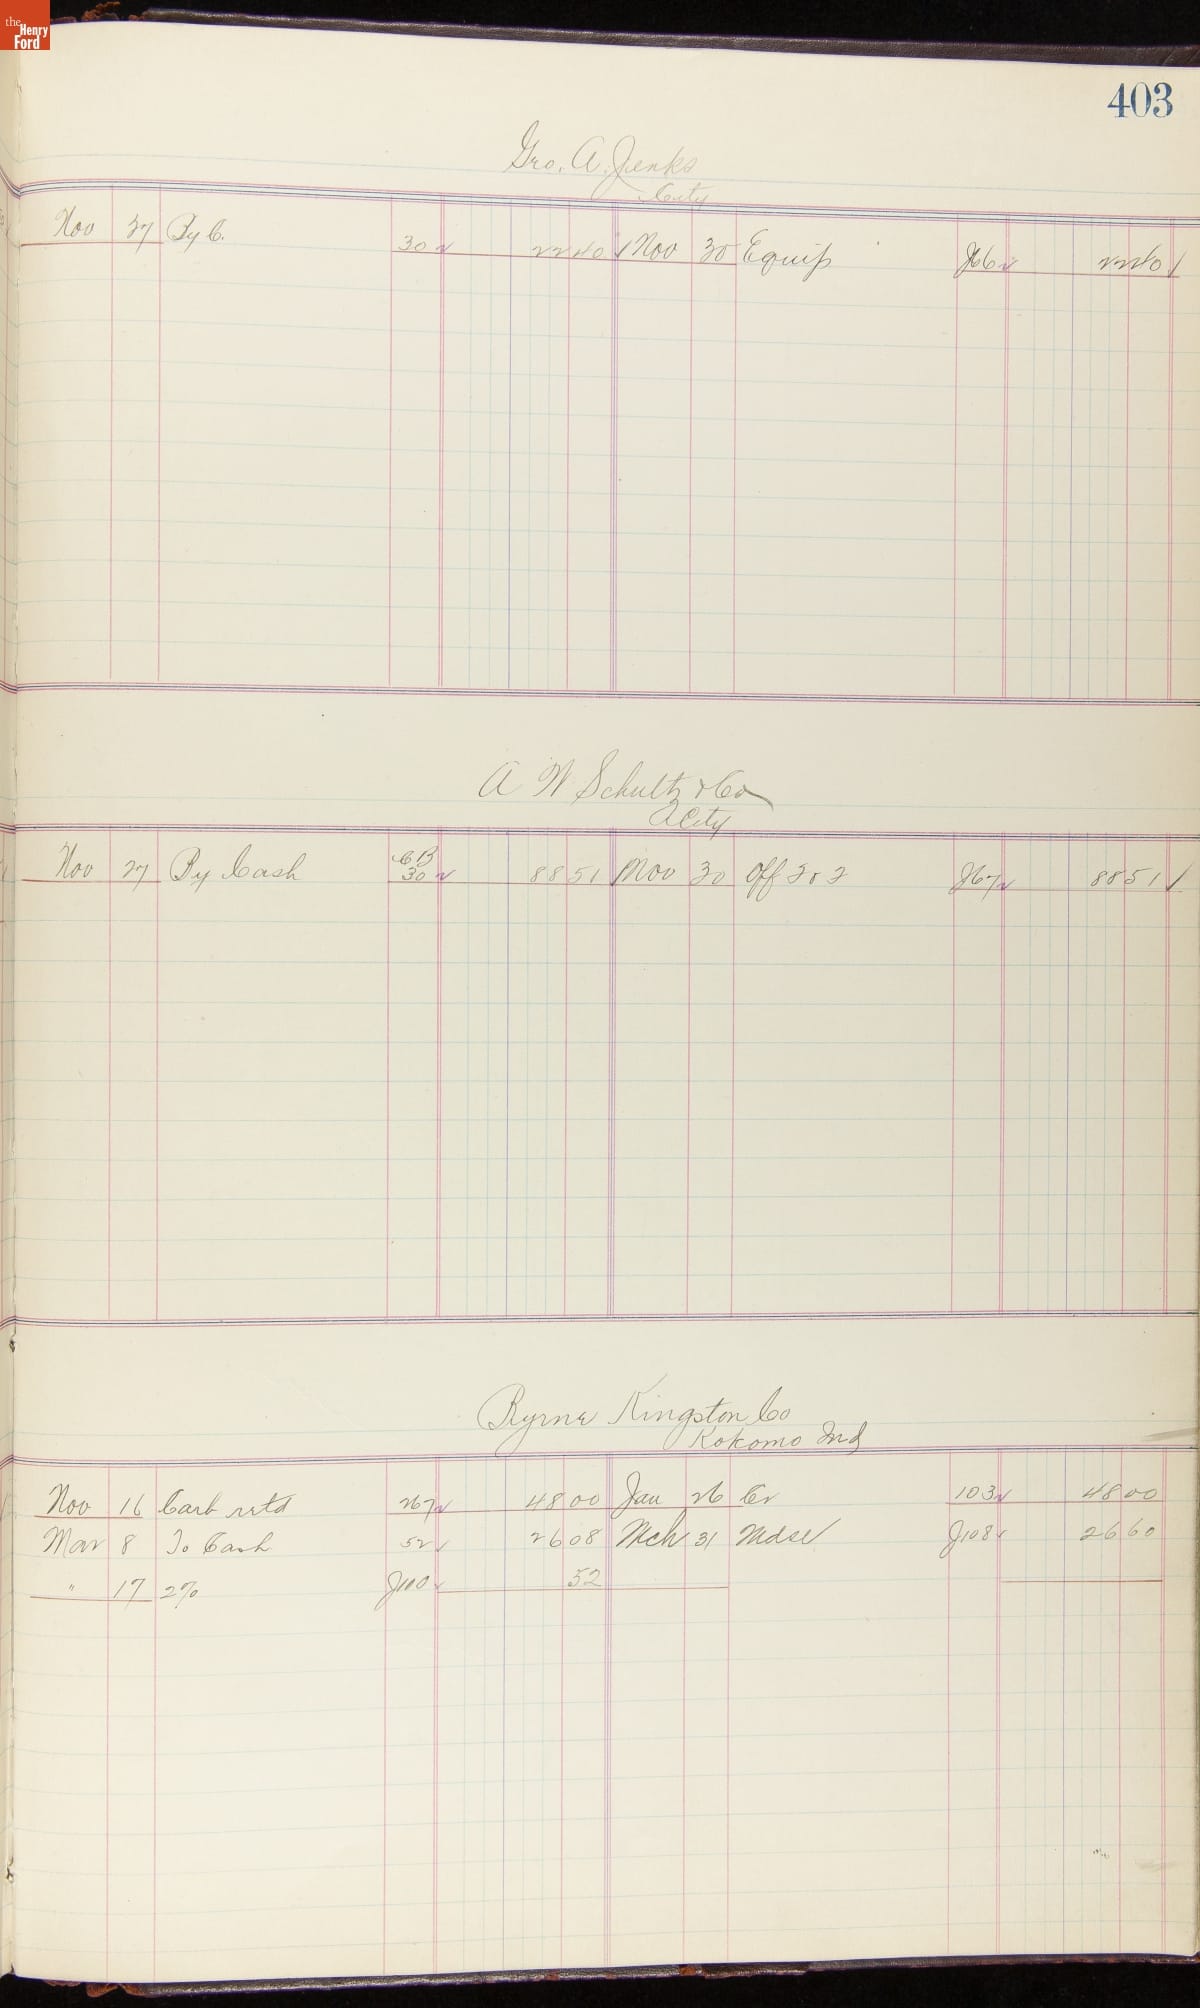 the Henry Ford
403
Geo. A. Jenks
City
Nov 27 By C. 30 22 40 Nov 30 Equip J66 22 40
A W Schultz & Co
City
Nov 27 By Cash CB 30 88 51 Nov 30 Off J67 88 51
Byrne Kingston Co
Kokomo Ind
Nov 16 Carb rtd 267 48 00 Jan 26 Cr 103 48 00
Mar 8 To Cash 52 26 08 Mch 31 Mdse J108 26 60
" 17 2% J100 52